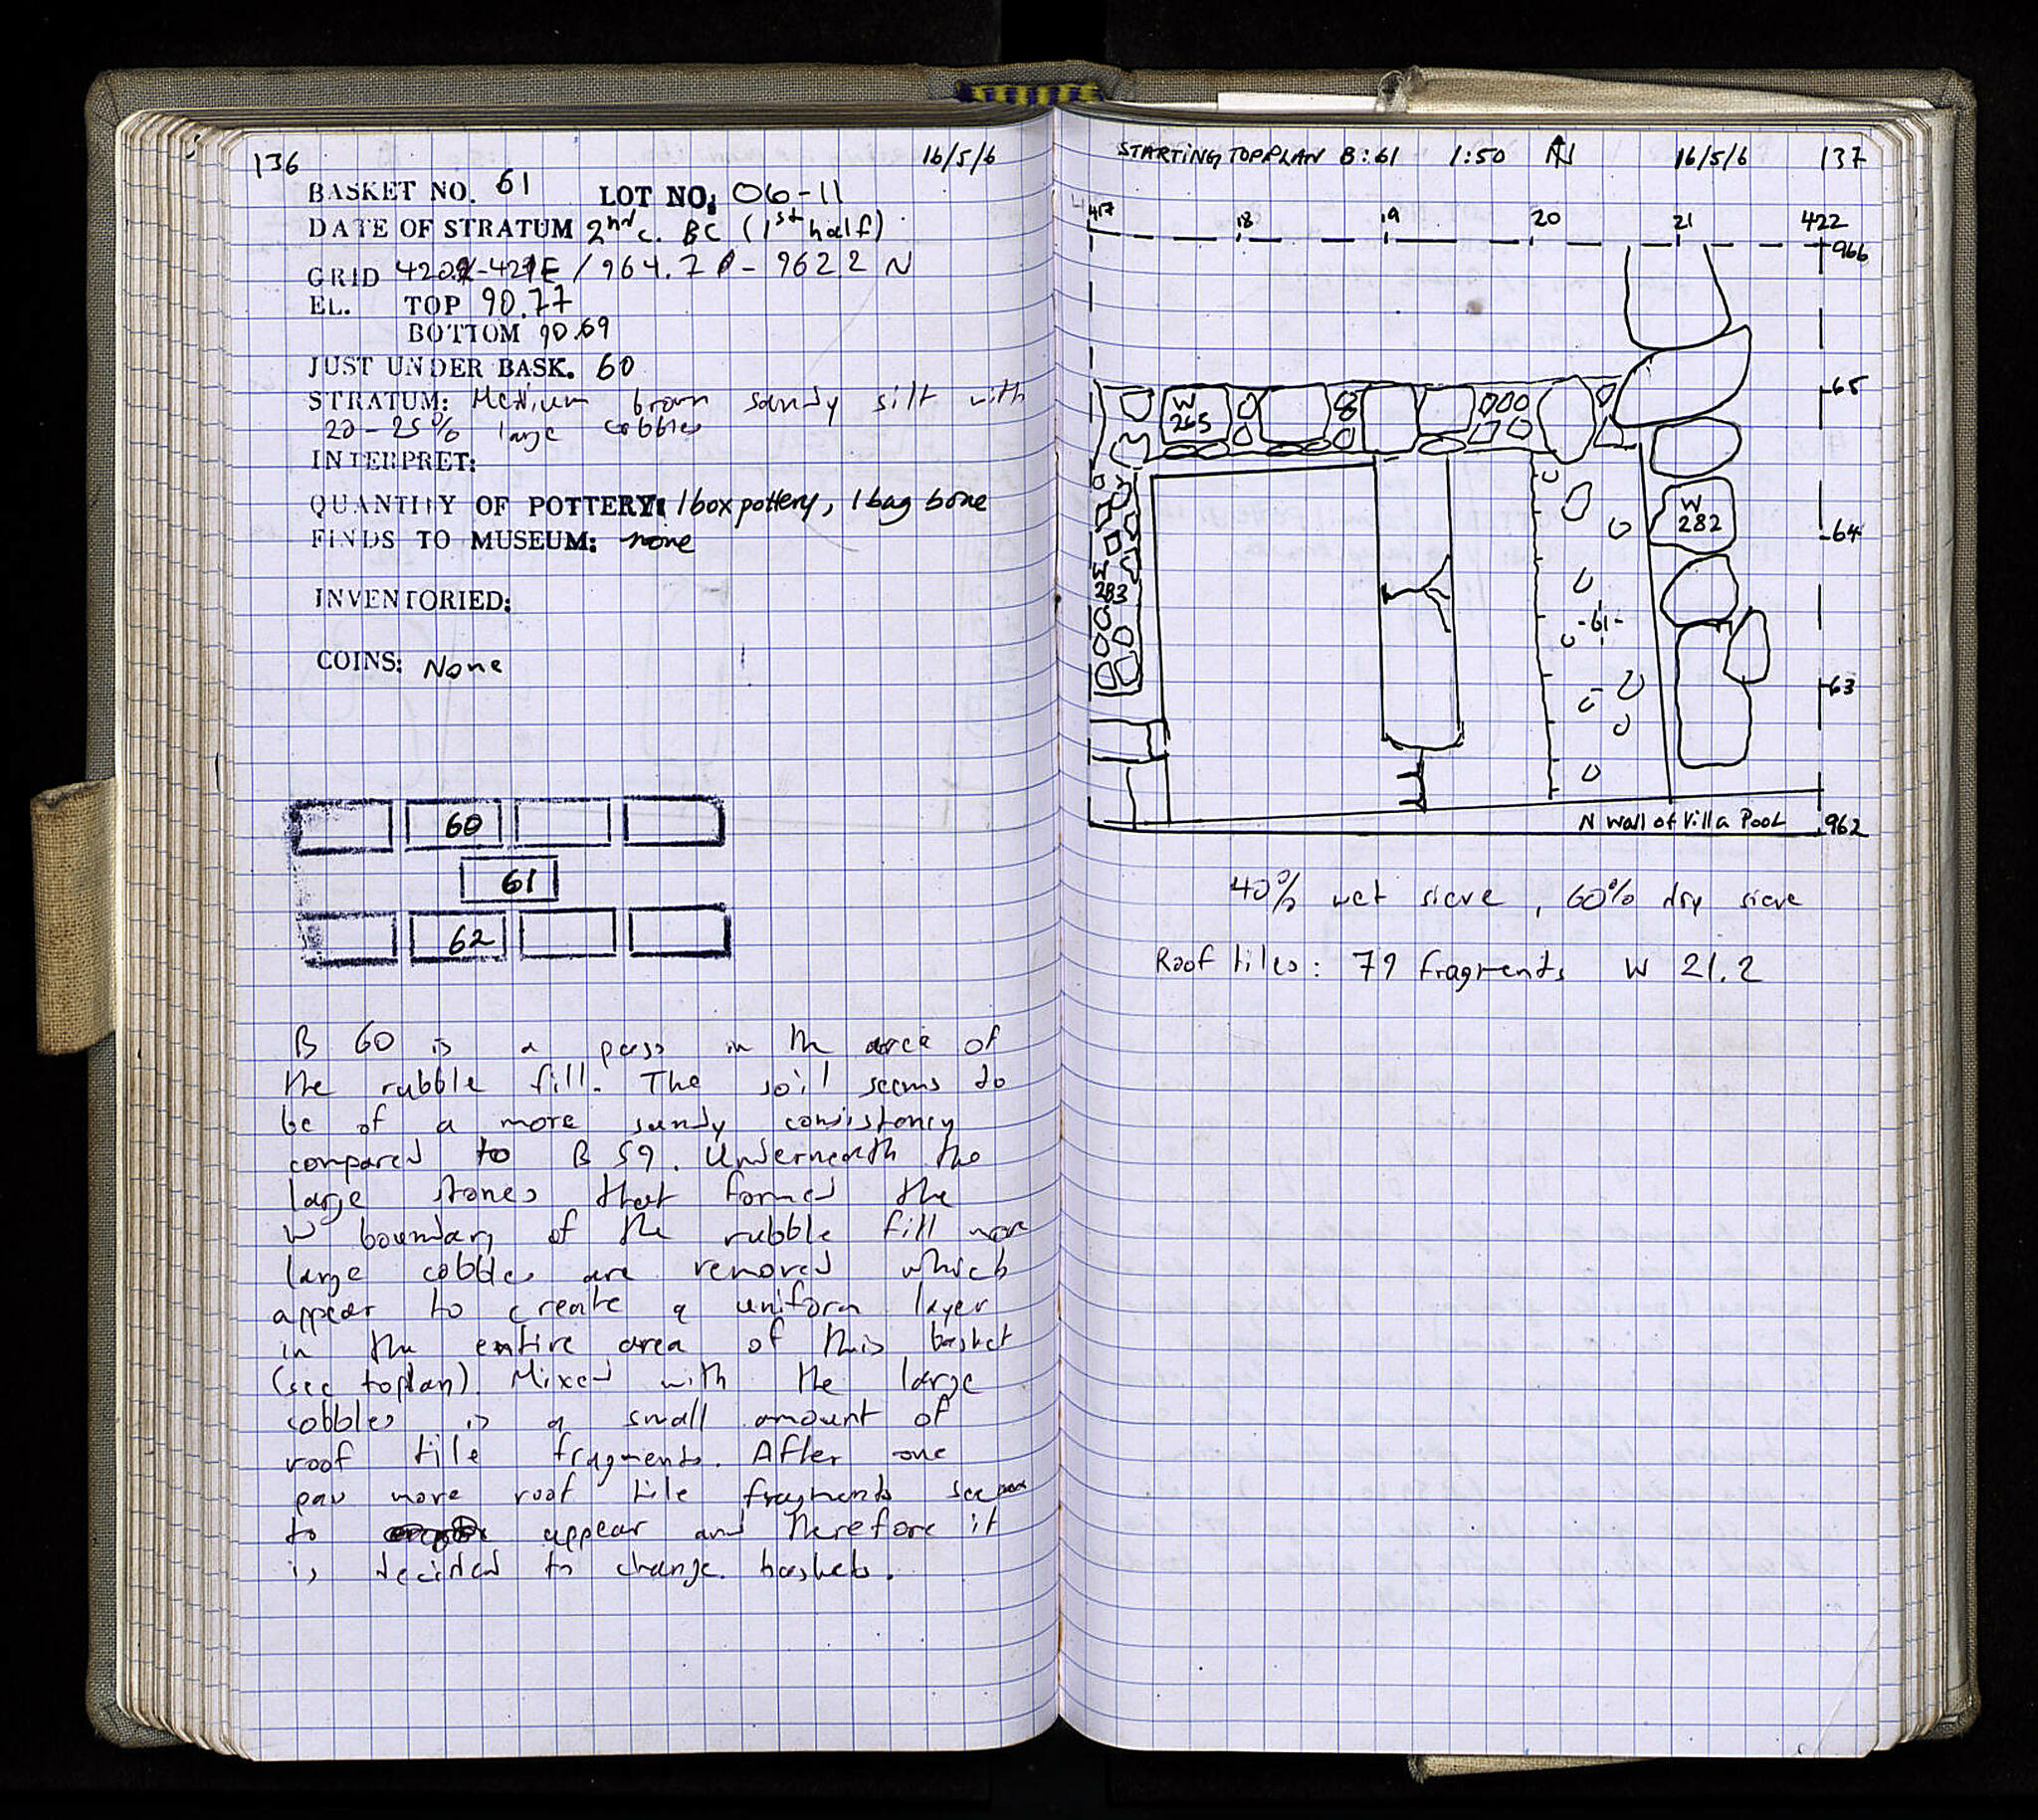 136 16/5/6
BASKET NO. 61 LOT NO: 06-11
DATE OF STRATUM 2nd c. BC (1st half)
GRID / 964.7 - 962.2 N
EL. TOP 90.77
BOTTOM 90.69
JUST UNDER BASK. 60
STRATUM: Medium brown sandy silt with
20-25% large cobbles
INTERPRET:
QUANTITY OF POTTERY: 1 box pottery, 1 bag bone
FINDS TO MUSEUM: none
INVENTORIED:
COINS: None
60
61
62
B 60 is a pass in the area of
the rubble fill. The soil seems to
be of a more sandy consistency
compared to B 59. Underneath the
large stones that formed the
W boundary of the rubble fill more
large cobbles are removed which
appear to create a uniform layer
in the entire area of this basket
(see toplan). Mixed with the large
cobbles is a small amount of
roof tile fragments. After one
pass more roof tile fragments seem
to appear and therefore it
is decided to change baskets.
STARTING TOPPLAN B:61 1:50 N 16/5/6 137
417 18 19 20 21 422
966
65
W
265
W
282
64
W
283
-61-
63
N Wall of Villa Pool 962
40% wet sieve, 60% dry sieve
Roof tiles: 79 fragments W 21.2